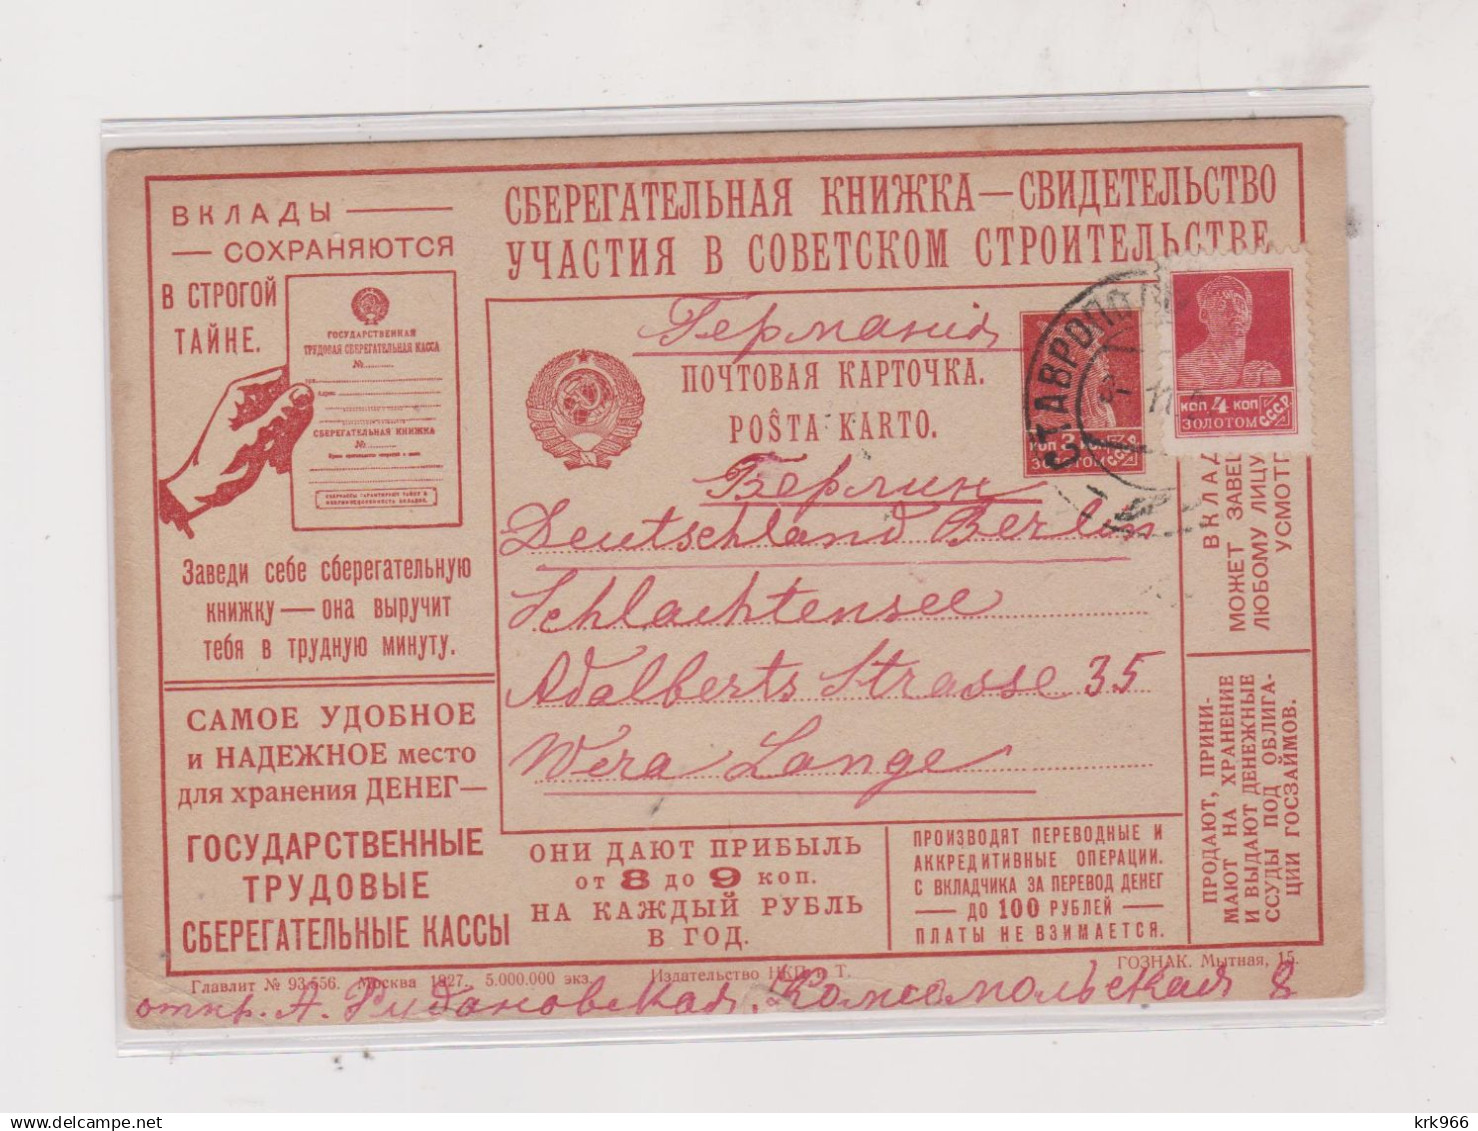 СБЕРЕГАТЕЛЬНАЯ КНИЖКА—СВИДЕТЕЛЬСТВО
УЧАСТИЯ В СОВЕТСКОМ СТРОИТЕЛЬСТВЕ
ВКЛАДЫ —
— СОХРАНЯЮТСЯ
В СТРОГОЙ
ТАЙНЕ.
ГОСУДАРСТВЕННАЯ
ТРУДОВАЯ СБЕРЕГАТЕЛЬНАЯ КАССА
№
Адрес
СБЕРЕГАТЕЛЬНАЯ КНИЖКА
№
Заведи себе сберегательную
книжку — она выручит
тебя в трудную минуту.
САМОЕ УДОБНОЕ
и НАДЕЖНОЕ место
для хранения ДЕНЕГ—
ГОСУДАРСТВЕННЫЕ
ТРУДОВЫЕ
СБЕРЕГАТЕЛЬНЫЕ КАССЫ
Германія
ПОЧТОВАЯ КАРТОЧКА.
POŜTA KARTO.
Берлин
Deutschland Berlin
Schlachtensee
Adalberts Strasse 35
Wera Lange
КОП 3 КОП
ЗОЛОТОМ СССР
СТАВРОПОЛЬ
КОП 4 КОП
ЗОЛОТОМ СССР
ВКЛАД
МОЖЕТ ЗАВЕЩ
ЛЮБОМУ ЛИЦУ
УСМОТР
ПРОДАЮТ, ПРИНИ-
МАЮТ НА ХРАНЕНИЕ
И ВЫДАЮТ ДЕНЕЖНЫЕ
ССУДЫ ПОД ОБЛИГА-
ЦИИ ГОСЗАЙМОВ.
ОНИ ДАЮТ ПРИБЫЛЬ
от 8 до 9 коп.
НА КАЖДЫЙ РУБЛЬ
В ГОД.
ПРОИЗВОДЯТ ПЕРЕВОДНЫЕ И
АККРЕДИТИВНЫЕ ОПЕРАЦИИ.
С ВКЛАДЧИКА ЗА ПЕРЕВОД ДЕНЕГ
— ДО 100 РУБЛЕЙ —
ПЛАТЫ НЕ ВЗИМАЕТСЯ.
Главлит № 93.556. Москва 1927. 5.000.000 экз. Издательство НКП и Т. ГОЗНАК. Мытная, 15.
откр. А. Рудановская. Комсомольская 8
krk966